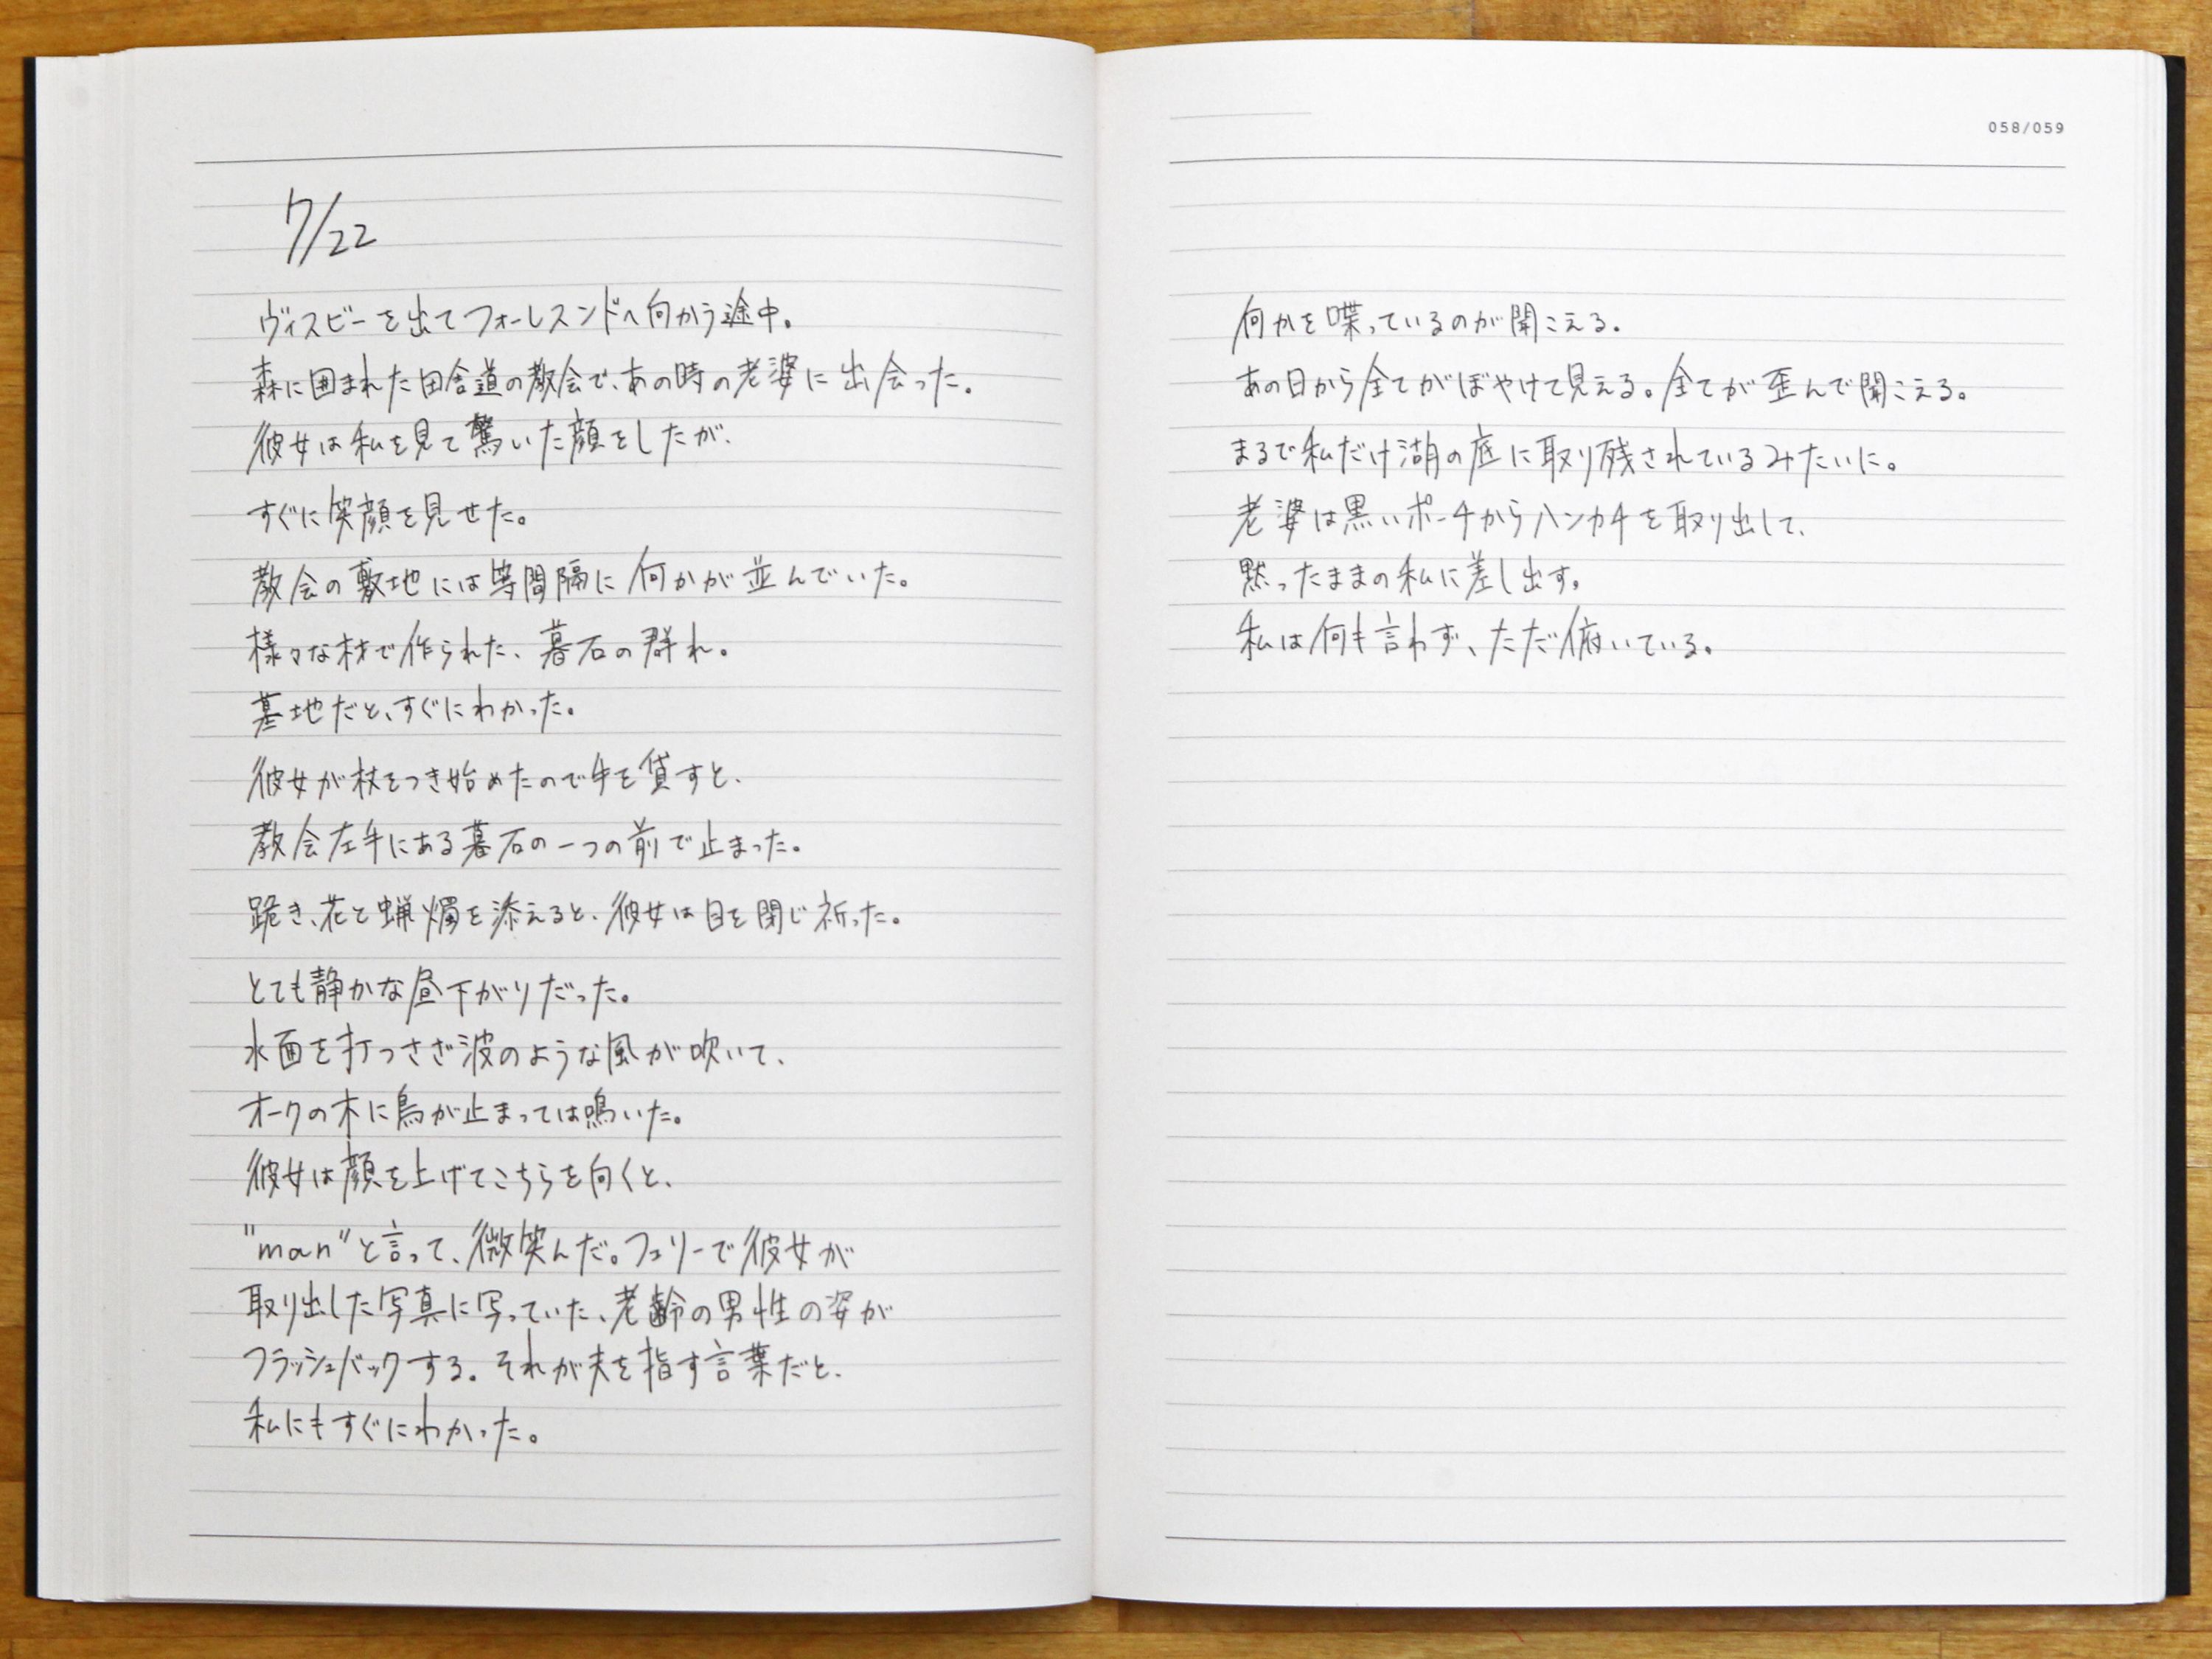 7/22
ヴィスビーを出てフォーレスンドへ向かう途中。
森に囲まれた田舎道の教会で、あの時の老婆に出会った。
彼女は私を見て驚いた顔をしたが、
すぐに笑顔を見せた。
教会の敷地には等間隔に何かが並んでいた。
様々な材で作られた、墓石の群れ。
墓地だと、すぐにわかった。
彼女が杖をつき始めたので手を貸すと、
教会左手にある墓石の一つの前で止まった。
跪き、花と蝋燭を添えると、彼女は目を閉じ祈った。
とても静かな昼下がりだった。
水面を打つさざ波のような風が吹いて、
オークの木に鳥が止まっては鳴いた。
彼女は顔を上げてこちらを向くと、
"man"と言って、微笑んだ。フェリーで彼女が
取り出した写真に写っていた、老齢の男性の姿が
フラッシュバックする。それが夫を指す言葉だと、
私にもすぐにわかった。
058/059
何かを喋っているのが聞こえる。
あの日から全てがぼやけて見える。全てが歪んで聞こえる。
まるで私だけ湖の底に取り残されているみたいに。
老婆は黒いポーチからハンカチを取り出して、
黙ったままの私に差し出す。
私は何も言わず、ただ俯いている。